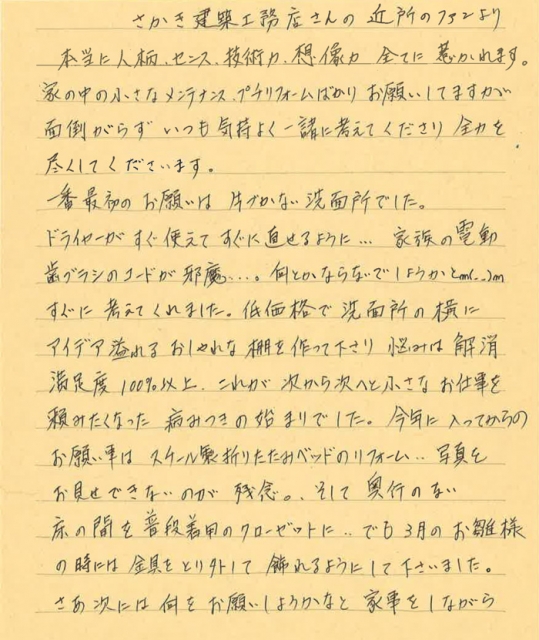 さかき建築工務店さんの近所のファンより
本当に人柄、センス、技術力、想像力 全てに惹かれます。
家の中の小さなメンテナンス、プチリフォームばかりお願いしてますが
面倒がらず いつも気持よく一緒に考えてくださり 全力を
尽くしてくださいます。
一番最初のお願いは 片づかない洗面所でした。
ドライヤーがすぐ使えてすぐに直せるように… 家族の電動
歯ブラシのコードが邪魔…。何とかならないでしょうかとm(..)m
すぐに考えてくれました。低価格で洗面所の横に
アイデア溢れるおしゃれな棚を作って下さり 悩みは解消
満足度100%以上、これが次から次へと小さなお仕事を
頼みたくなった 病みつきの始まりでした。今年に入ってからの
お願い事は スチール製折りたたみベッドのリフォーム‥写真を
お見せできないのが残念。。そして奥行のない
床の間を普段着用のクローゼットに‥でも3月のお雛様
の時には金具をとり外して飾れるようにして下さいました。
さあ次には何をお願いしようかなと 家事をしながら